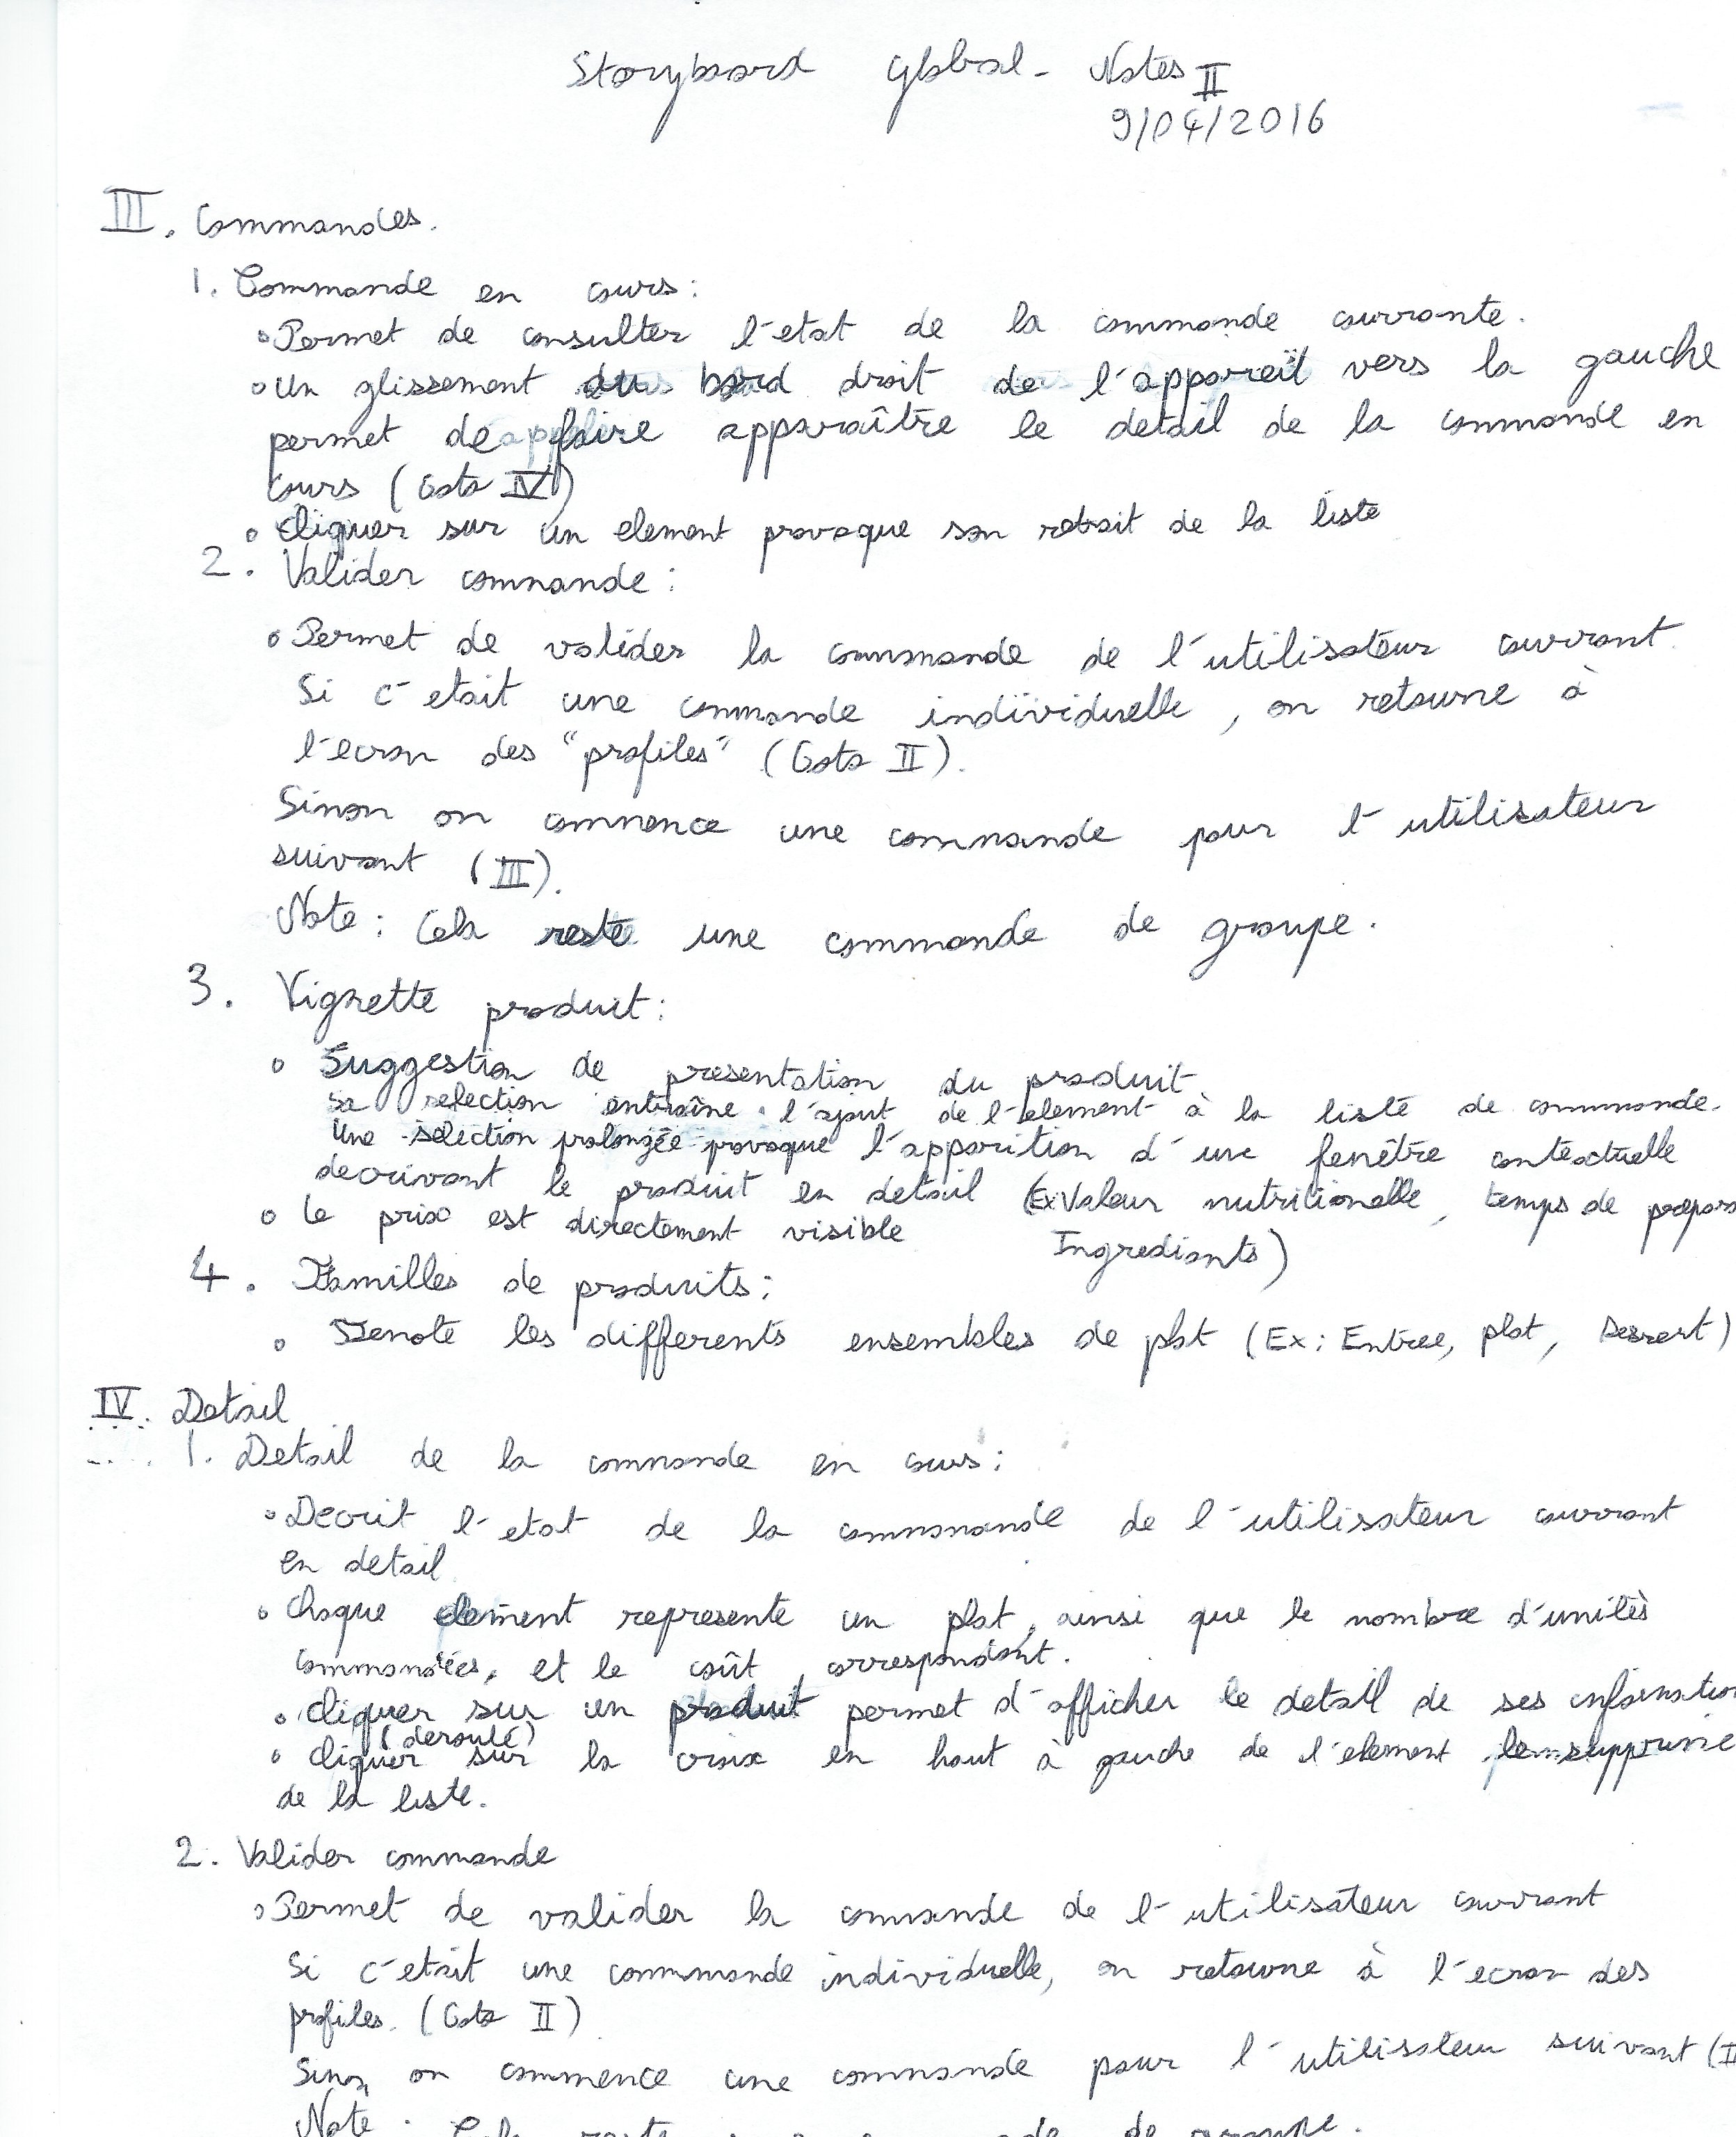 Storyboard Global - Notes II
9/04/2016
III. Commandes.
1. Commande en cours:
° Permet de consulter l'etat de la commande courrante.
° Un glissement du bord droit de l'appareil vers la gauche
permet de faire apparaître le detail de la commande en
cours (Goto IV)
° cliquer sur un element provoque son retrait de la liste
2. Valider commande:
° Permet de valider la commande de l'utilisateur courrant.
Si c'etait une commande individuelle, on retourne à
l'ecran des "profiles" (Goto II).
Sinon on commence une commande pour l'utilisateur
suivant (III).
Note: Cela reste une commande de groupe.
3. Vignette produit:
° Suggestion de presentation du produit
sa selection entraîne l'ajout de l'element à la liste de commande.
Une selection prolongée provoque l'apparition d'une fenêtre contextuelle
decrivant le produit en detail (Ex Valeur nutritionelle, temps de prepara
° Le prix est directement visible Ingrediants)
4. Familles de produits:
° Denote les differents ensembles de plat (Ex: Entree, plat, Dessert)
IV. Detail
1. Detail de la commande en cours:
° Decrit l'etat de la commande de l'utilisateur courrant
en detail
° Chaque element represente un plat, ainsi que le nombre d'unités
commandées, et le coût correspondant.
° cliquer sur un produit permet d'afficher le detail de ses informatio
(deroulé)
° cliquer sur la croix en haut à gauche de l'element le supprime
de la liste.
2. Valider commande
° Permet de valider la commande de l'utilisateur courrant
Si c'etait une commande individuelle, on retourne à l'ecran des
profiles. (Goto II)
Sinon on commence une commande pour l'utilisateur suivant (I
Note: Cela reste une commande de groupe.